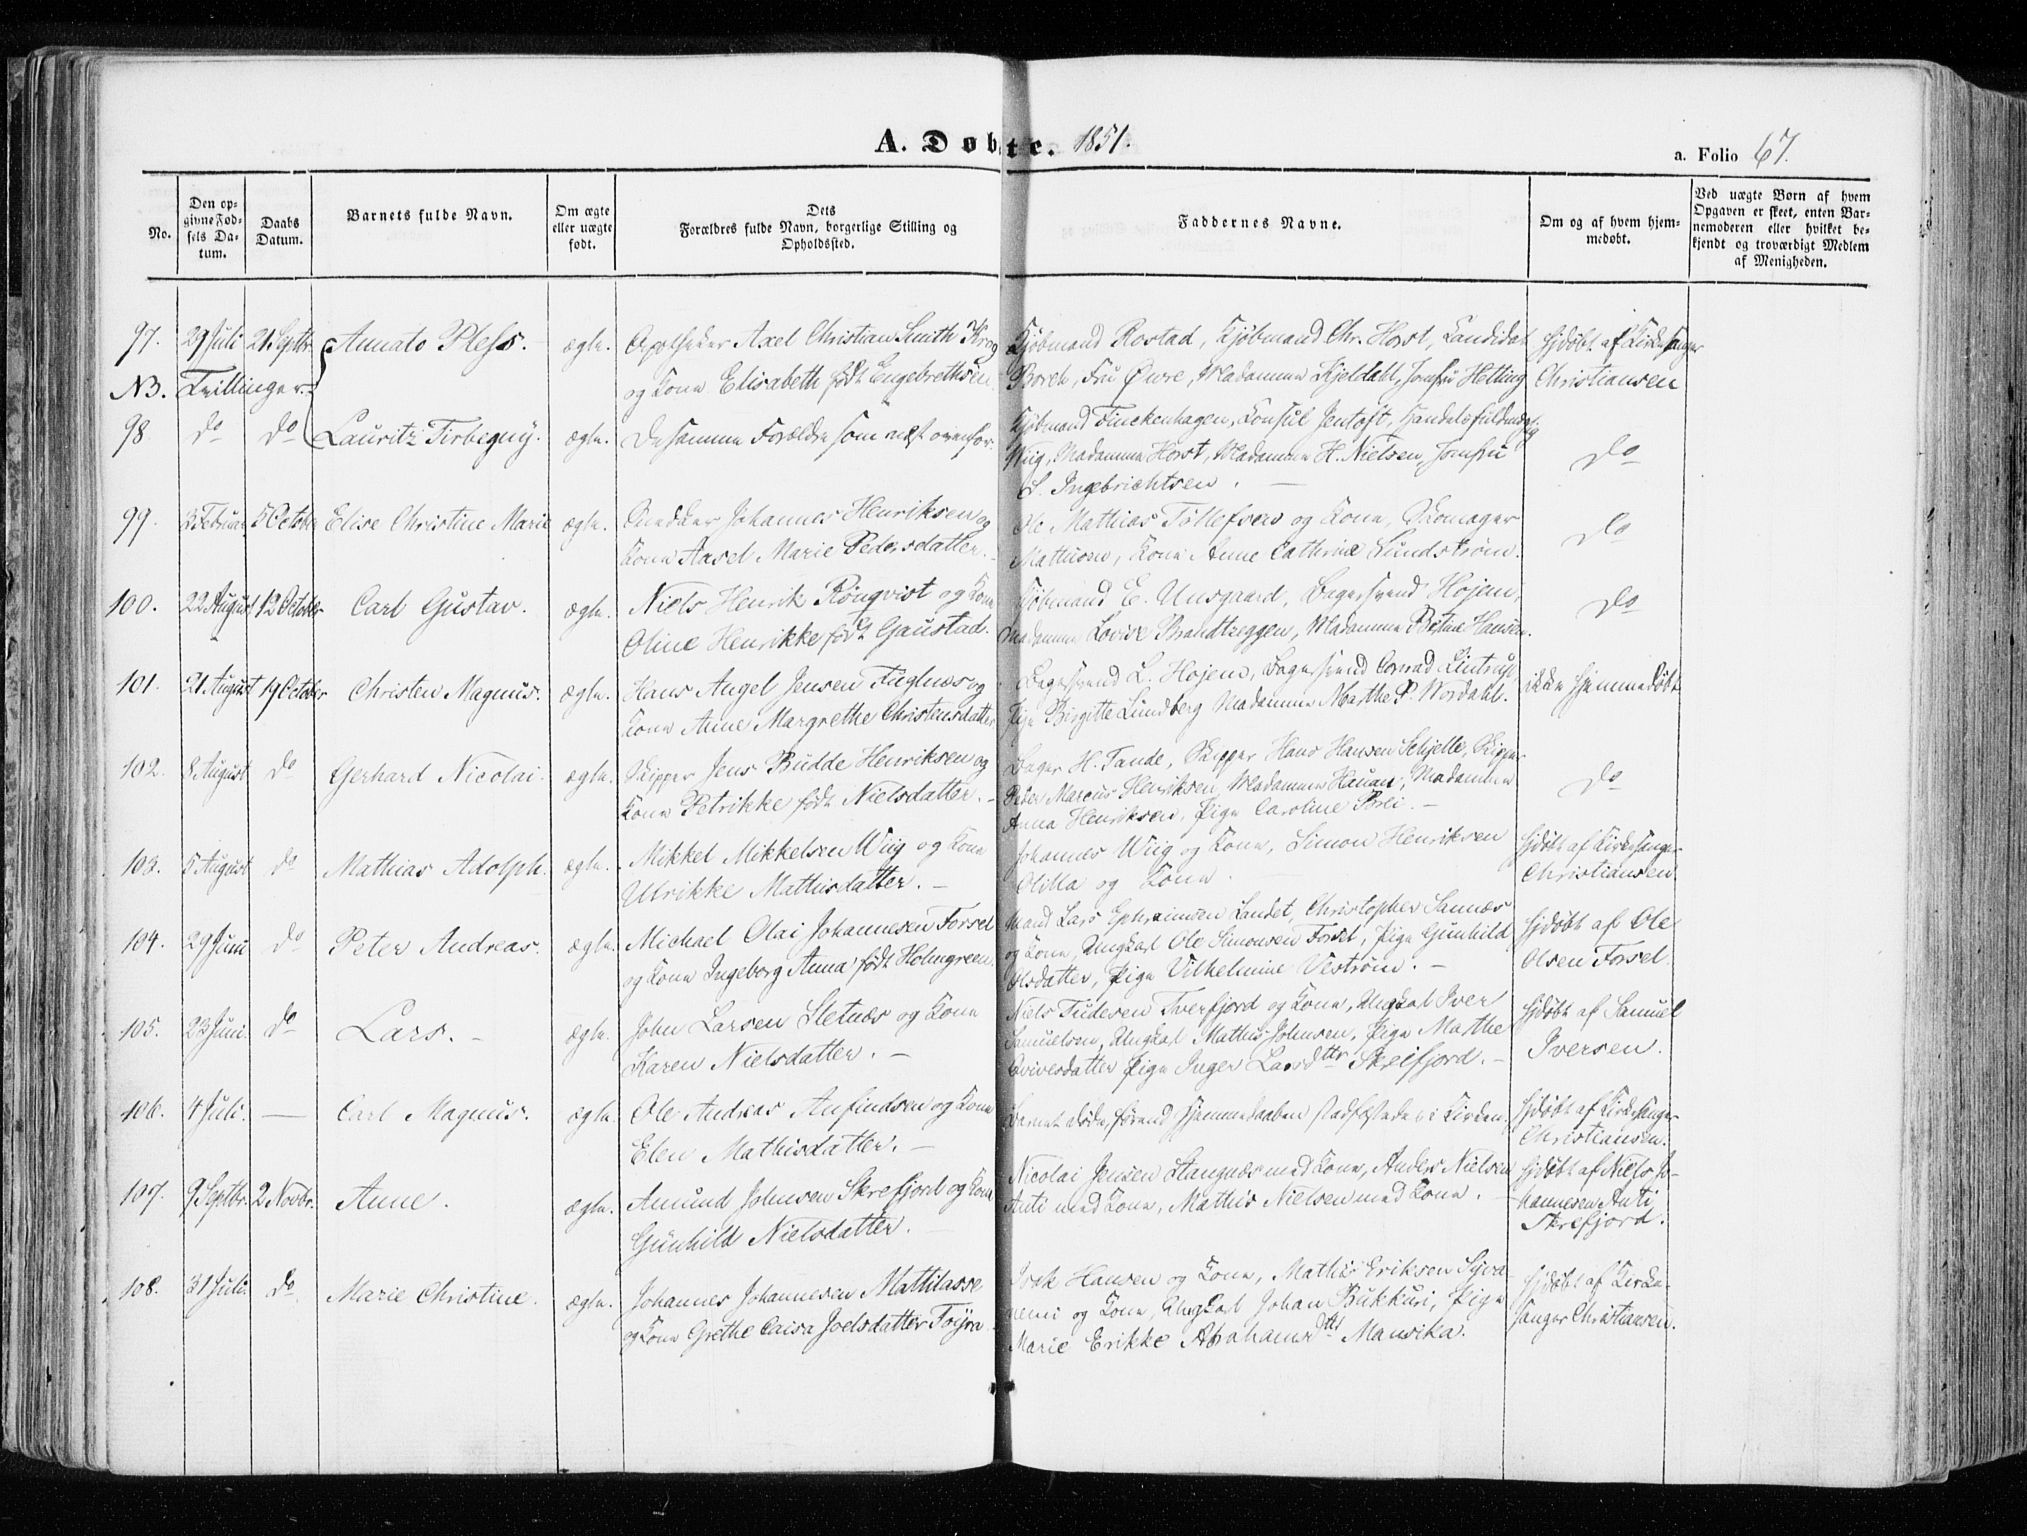 A. Døbte. 1851.
a. Folio 67.
No.
Den opgivne Fødsels Datum.
Daabs Datum.
Barnets fulde Navn.
Om ægte eller uægte født.
Dets Forældres fulde Navn, borgerlige Stilling og Opholdssted.
Faddernes Navne.
Om og af hvem hjemmedøbt.
Ved uægte Børn af hvem Opgaven er skeet, enten Barnemoderen eller hvilket bekjendt og troværdigt Medlem af Menigheden.
97. 29 Juli 21 Septbr. Annato Pless. ægte. Apotheker Axel Christian Smith Krog Kjøbmand Rostad, Kjøbmand Chr. Horst, Candidat hjdøbt af Kirkesanger
NB. Tvillinger. og Kone Elisabeth født Engebrethsen Borch, Fru Øwre, Madamme Kjeldahl, Jomfru Hetting Christiansen
98 do do Lauritz ægte. De samme Forældre som næst ovenfor. Kjøbmand Finckenhagen, Consul Jentoft, Handelsfuldmægtig
Wiig, Madamme Horst, Madamme H. Nielsen, Jomfru do
S. Ingebrichtsen. —
99. 3 Februar 5 October Elise Christine Marie ægte. Snedker Johannes Henriksen og Ole Mathias Tøllefsen og Kone, Skomager do
Kone Aasel Marie Pedersdatter. Kone Anne Cathrine Sundstrøm.
100. 22 August 12 October Carl Gustav. ægte. Niels Henrik Rönqvist og Kone Kjøbmand E. Unsgaard, Bagersvend Hojem, do
Oline Henrikke født Gaustad. Madamme Lovise Brandtzeggen, Madamme Hansen.
101. 21 August 19 October Christen Magnus. ægte. Hans Angel Jensen Fuglnæs og Bagersvend L. Hojem, Bagersvend Conrad Lintrup, ikke hjemmedøbt
Kone Anne Margrethe Christensdatter Pige Birgitte Lundberg Madamme Marthe P. Wordahl.
102. 8 August do Gerhard Nicolai. ægte. Skipper Jens Budde Henriksen og Bager H. Tande, Skipper Hans Hansen Schjelle, Skipper
Kone Petrikke født Nielsdatter. — Peter Marcus Henriksen, Madamme Hauan, Madamme do
Anna Henriksen, Pige Caroline Brei. —
103. 5 August do Mathias Adolph. ægte. Mikkel Mikkelsen Wiig og Kone Johannes Wiig og Kone, Simon Henriksen hjdøbt af Kirkesanger
Ulrikke Mathisdatter. — Olilla og Kone. Christiansen
104. 29 Juni do Peter Andreas. ægte. Michael Olai Johannesen Forsel Mand Lars Ephraimsen Landet, Christopher Sannæs hjdøbt af Ole
og Kone Ingeborg Anna født Holmgreen. og Kone, Ungkarl Ole Simonsen Forsel, Pige Gunhild Olsen Forsel.
Olsdatter, Pige Vilhelmine Vestrøm. —
105. 23 Juni. do Lars. — ægte. John Larsen Sletnæs og Kone Niels Tudesen Tverfjord og Kone, Ungkarl Iver hjdøbt af Samuel
Karen Nielsdatter. — Samuelsen, Ungkarl Mathis Johnsen, Pige Marthe Iversen.
Pige Inger Larsdtr Skrefjord. —
106. 4 Juli. — Carl Magnus. ægte. Ole Andreas Anfindsen og Kone Barnet døde, førend Hjemmedaaben stadfæstedes i Kirken. hjdøbt af Kirkesanger
Elen Mathisdatter. — Christiansen.
107. 9 Septbr. 2 Novbr. Anne. ægte. Amund Johnsen Skrefjord og Kone Nicolai Jensen Stangnæs med Kone, Anders Nielsen hjdøbt af Niels Jo-
Gunhild Nielsdatter. — Anti med Kone, Mathis Nielsen med Kone. — hannesen Anti
Skrefjord.
108. 31 Juli. do Marie Christine. ægte. Johannes Johannesen Mathilasse Isak Hansen og Kone, Mathis Eriksen Syva- hjdøbt af Kirke-
og Kone Grethe Caisa Joelsdatter Töyra nemi og Kone, Ungkarl Johan Bukkuri, Pige sanger Christiansen.
Marie Erikke Abrahamsdtr Mansika.